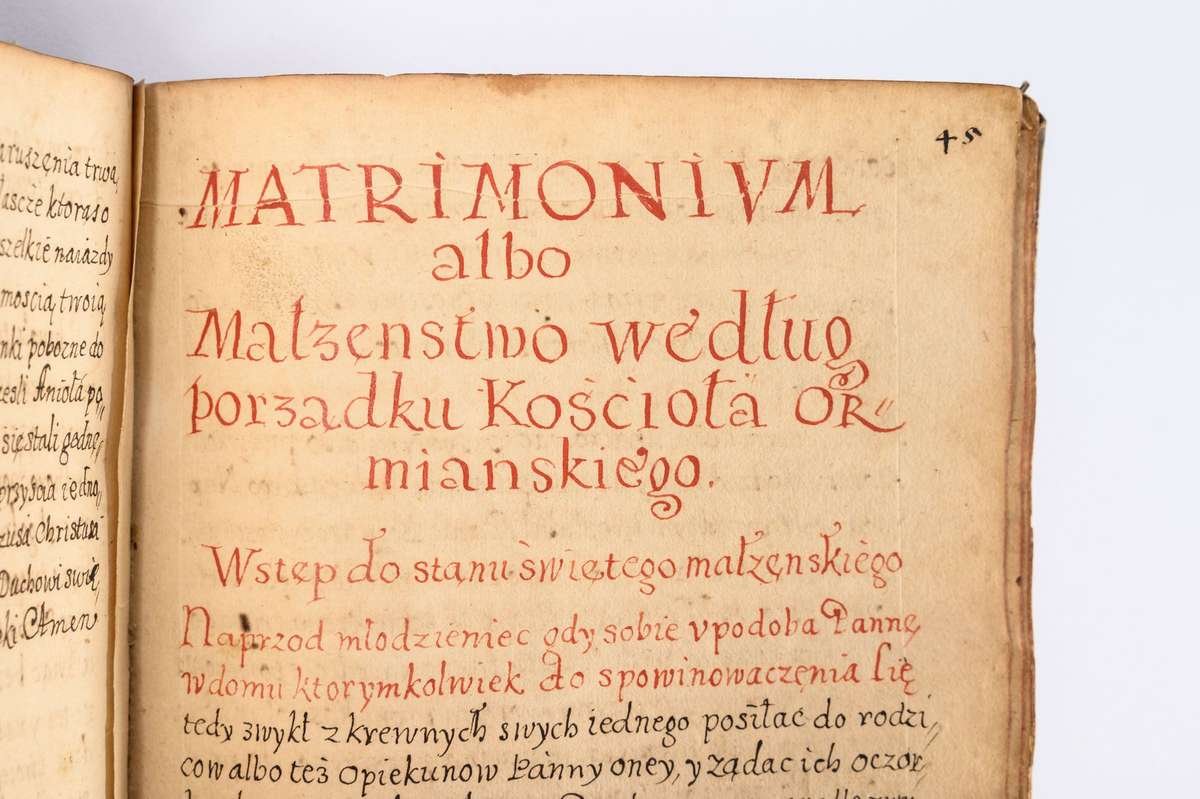 aruszęnia trwą
łascze ktorąso
szelkie naiazdy
mością twoią
nki pobozne do
ześli Anioła po„
się stali godne„
przyścia iedno„
zusa Christusa
Duchowi swię„
Amen
45
MATRIMONIVM
albo
Małzęnstwo według
porządku Kościoła OR„
mianskiego.
Wstęp do stanu świętego małzęnskiego
Naprzod młodzieniec gdy sobie vpodoba Pannę
w domu ktorymkolwiek do spowinowaczęnia się
tedy zwykł z krewnych swych iednego posiłać do rodzi„
cow albo też opiekunow Panny oney, y ządac ich oczor„